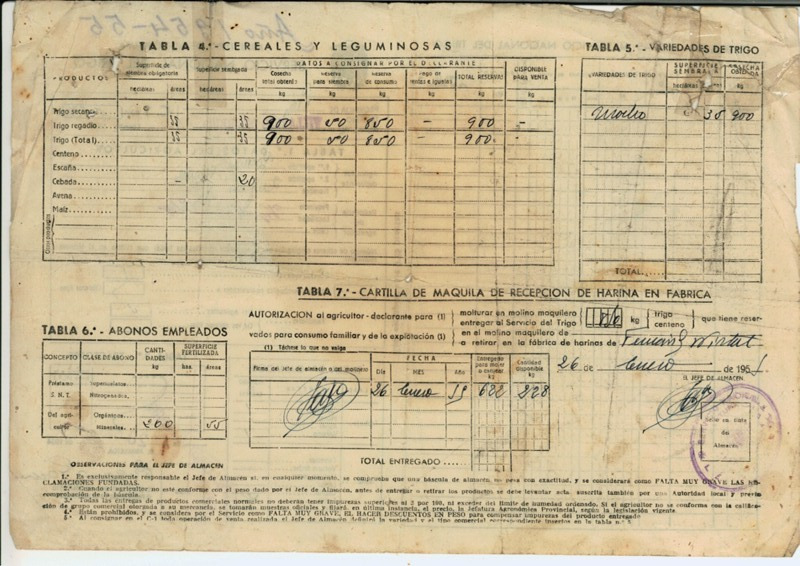 Año 1954-55
TABLA 4.ª - CEREALES Y LEGUMINOSAS
TABLA 5.ª - VARIEDADES DE TRIGO
DATOS A CONSIGNAR POR EL DECLARANTE
PRODUCTOS
Superficie de siembra obligatoria
Superficie sembrada
Cosecha
Reserva para siembra
Reserva de consumo
Pago de rentas e igualas
TOTAL RESERVAS
DISPONIBLE PARA VENTA
VARIEDADES DE TRIGO
SUPERFICIE SEMBRADA
COSECHA OBTENIDA
hectáreas áreas hectáreas áreas kg kg kg kg kg kg
hectáreas áreas kg
Trigo secano
Trigo regadío 900 50 850 - 900 -
Trigo (Total) 900 50 850 - 900 -
35 900
Centeno
Escaña
Cebada - 20
Avena
Maíz
TOTAL
TABLA 7.ª - CARTILLA DE MAQUILA DE RECEPCION DE HARINA EN FABRICA
AUTORIZACION al agricultor - declarante para (1)
molturar en molino maquilero
entregar al Servicio del Trigo
kg
trigo
centeno
que tiene reser-
vados para consumo familiar y de la explotación (1)
en el molino maquilero de
a retirar, en la fábrica de harinas de
(1) Táchese lo que no valga
26 de Enero de 195
EL JEFE DE ALMACEN
Firma del Jefe de almacén o del molinero
FECHA
Día MES Año
Entregado para moler o canjear kg
Cantidad disponible kg
26 Enero 622 228
Sello en tinta del Almacén
TOTAL ENTREGADO
TABLA 6.ª - ABONOS EMPLEADOS
CONCEPTO CLASE DE ABONO CANTIDADES kg SUPERFICIE FERTILIZADA has. áreas
Préstamo S. N. T.
Superfosfatos
Nitrogenados
Del agricultor
Orgánicos
minerales 200 55
OBSERVACIONES PARA EL JEFE DE ALMACEN
1.ª Es exclusivamente responsable el Jefe de Almacén si, en cualquier momento, se comprueba que una báscula de almacén, no pesa con exactitud, y se considerará como FALTA MUY GRAVE LAS RECLAMACIONES FUNDADAS.
2.ª Cuando el agricultor no esté conforme con el peso dado por el Jefe de Almacén, antes de entregar o retirar los productos, se debe levantar acta, suscrita también por una Autoridad local y previa comprobación de la báscula.
3.ª Todas las entregas de productos comerciales normales no deberán tener impurezas superiores al 3 por 100, ni exceder del límite de humedad ordenado. Si el agricultor no se conforma con la calificación de grupo comercial otorgada a su mercancía, se tomarán muestras oficiales y fijará, en última instancia, el precio, la Jefatura Agronómica Provincial, según la legislación vigente.
4.ª Están prohibidos, y se considera por el Servicio como FALTA MUY GRAVE, EL HACER DESCUENTOS EN PESO para compensar impurezas del producto entregado
5.ª Al consignar en el C-1 toda operación de venta realizada el Jefe de Almacén definirá la variedad y el tipo comercial correspondiente insertos en la tabla